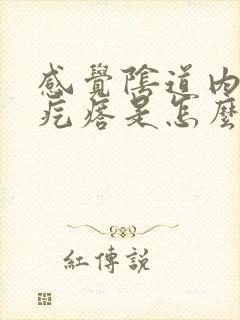 感覺陰道內
疙瘩是怎麼
紅傳說